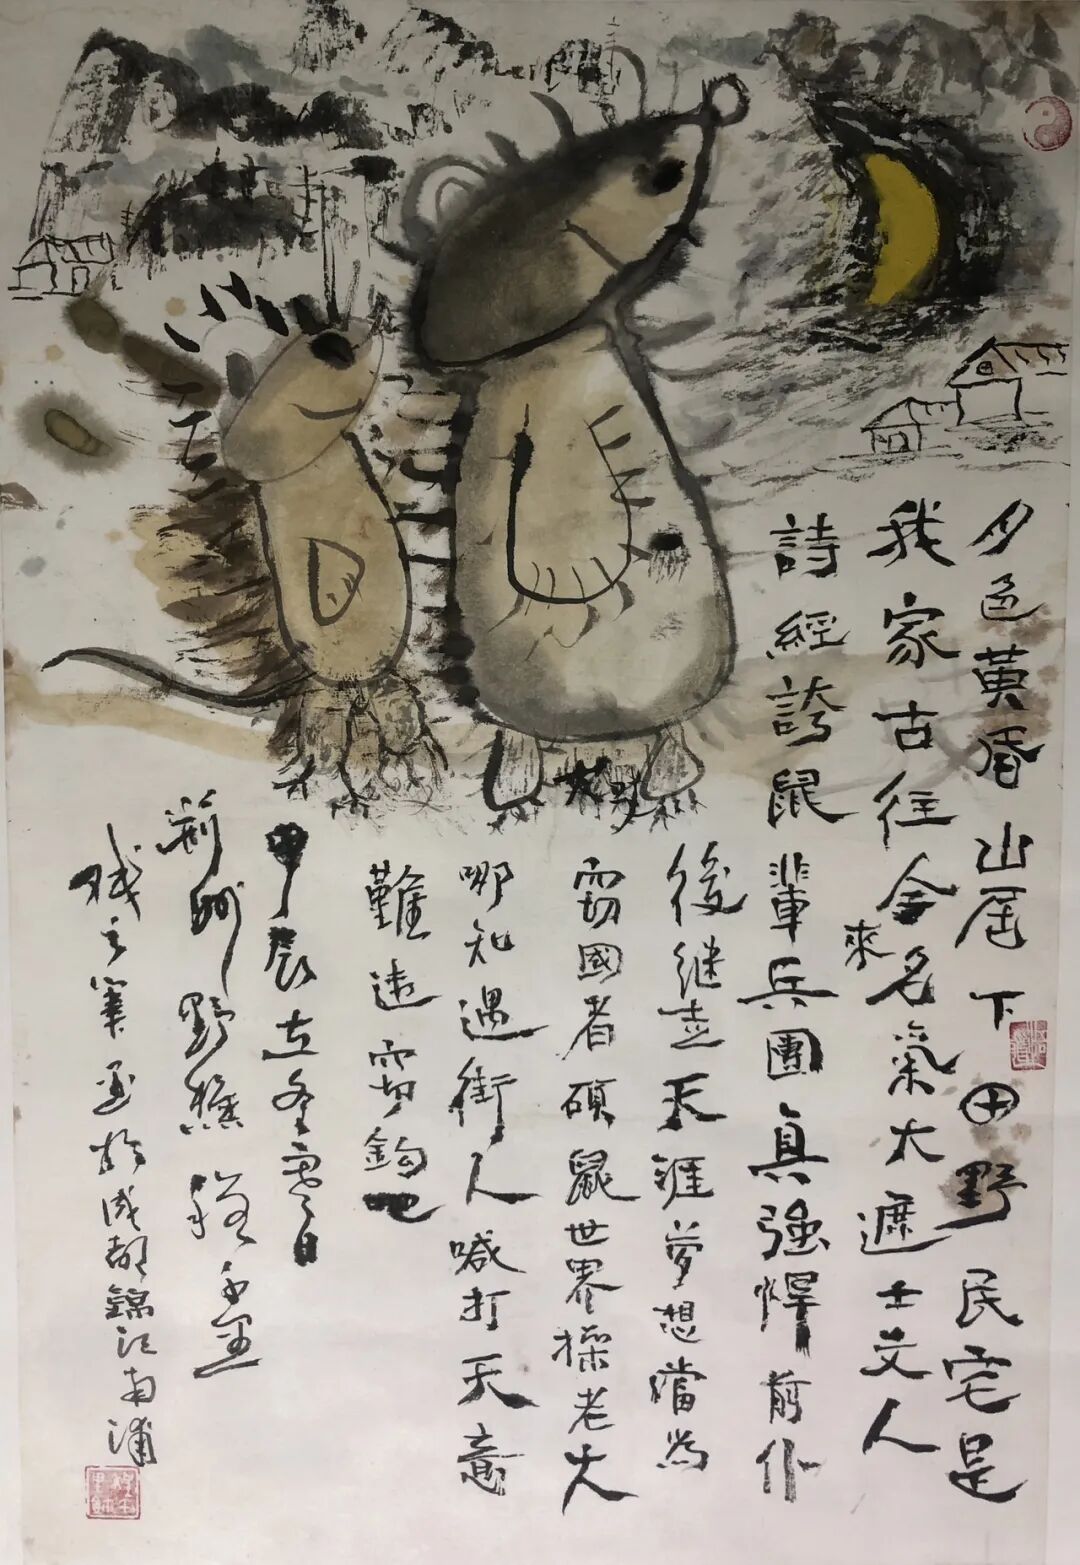 月色黄昏山居下田野民宅是
我家古往今來名氣大遮士文人
詩經誇鼠輩兵團真强悍前仆
後继走天涯夢想當為
窃國者碩鼠世界操老大
哪知遇街人喊打天意
難違窃鈎也
甲辰立冬 日
荆州野樵程
戲之筆墨於成都錦江南浦